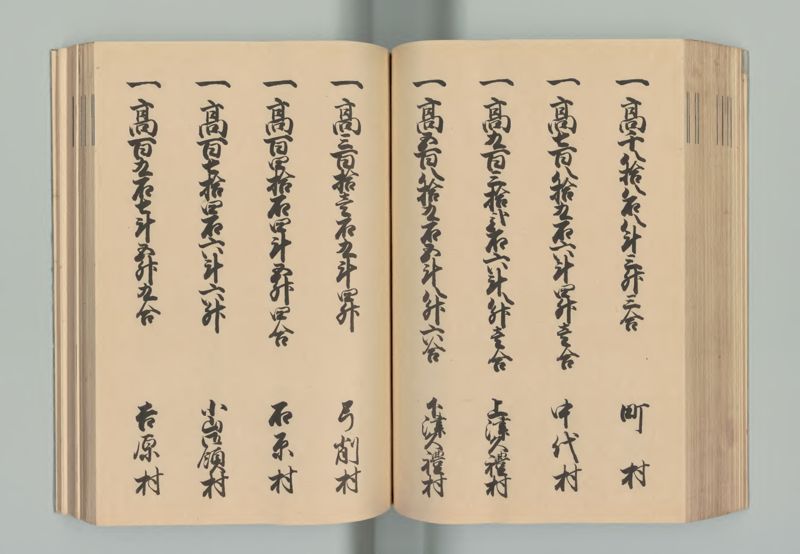 一 高千八拾八石八斗三升三合 町村
一 高七百八拾五石六斗四升壱合 中代村
一 高九百三拾弐石六斗八升壱合 上津久礼村
一 高五百八拾五石五斗八升六合 下津久礼村
一 高三百拾壱石九斗四升 弓削村
一 高百四拾石四斗五升四合 石原村
一 高百七拾四石六斗六升 小山戸嶋村
一 高百九石七斗五升九合 吉原村